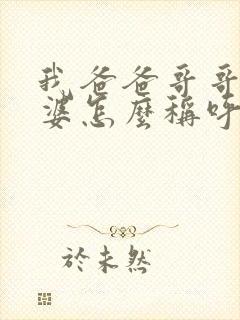 我爸爸哥哥
婆怎麼稱呼
於未然